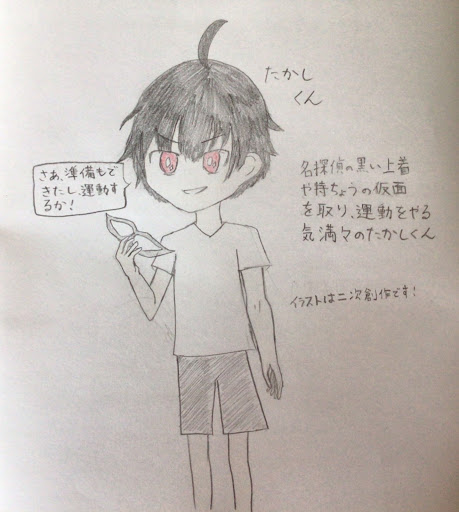 たかし
くん
さあ、準備もで
きたし、運動す
るか!
名探偵の黒い上着
や特ちょうの仮面
を取り、運動をやる
気満々のたかしくん
イラストは二次創作です!